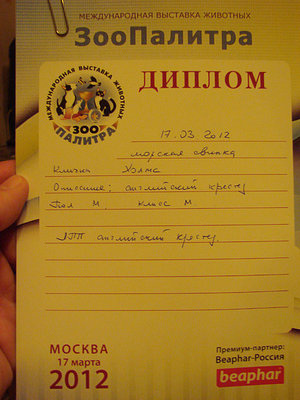 МЕЖДУНАРОДНАЯ ВЫСТАВКА ЖИВОТНЫХ
ЗооПалитра
МЕЖДУНАРОДНАЯ ВЫСТАВКА ЖИВОТНЫХ
ЗОО
ПАЛИТРА
ДИПЛОМ
17.03 2012
морская свинка
Кличка Холмс
Описание: английский крестед
Пол М. класс М.
ЛПП английский крестед.
МОСКВА
17 марта
2012
Премиум-партнер:
Beaphar-Россия
beaphar